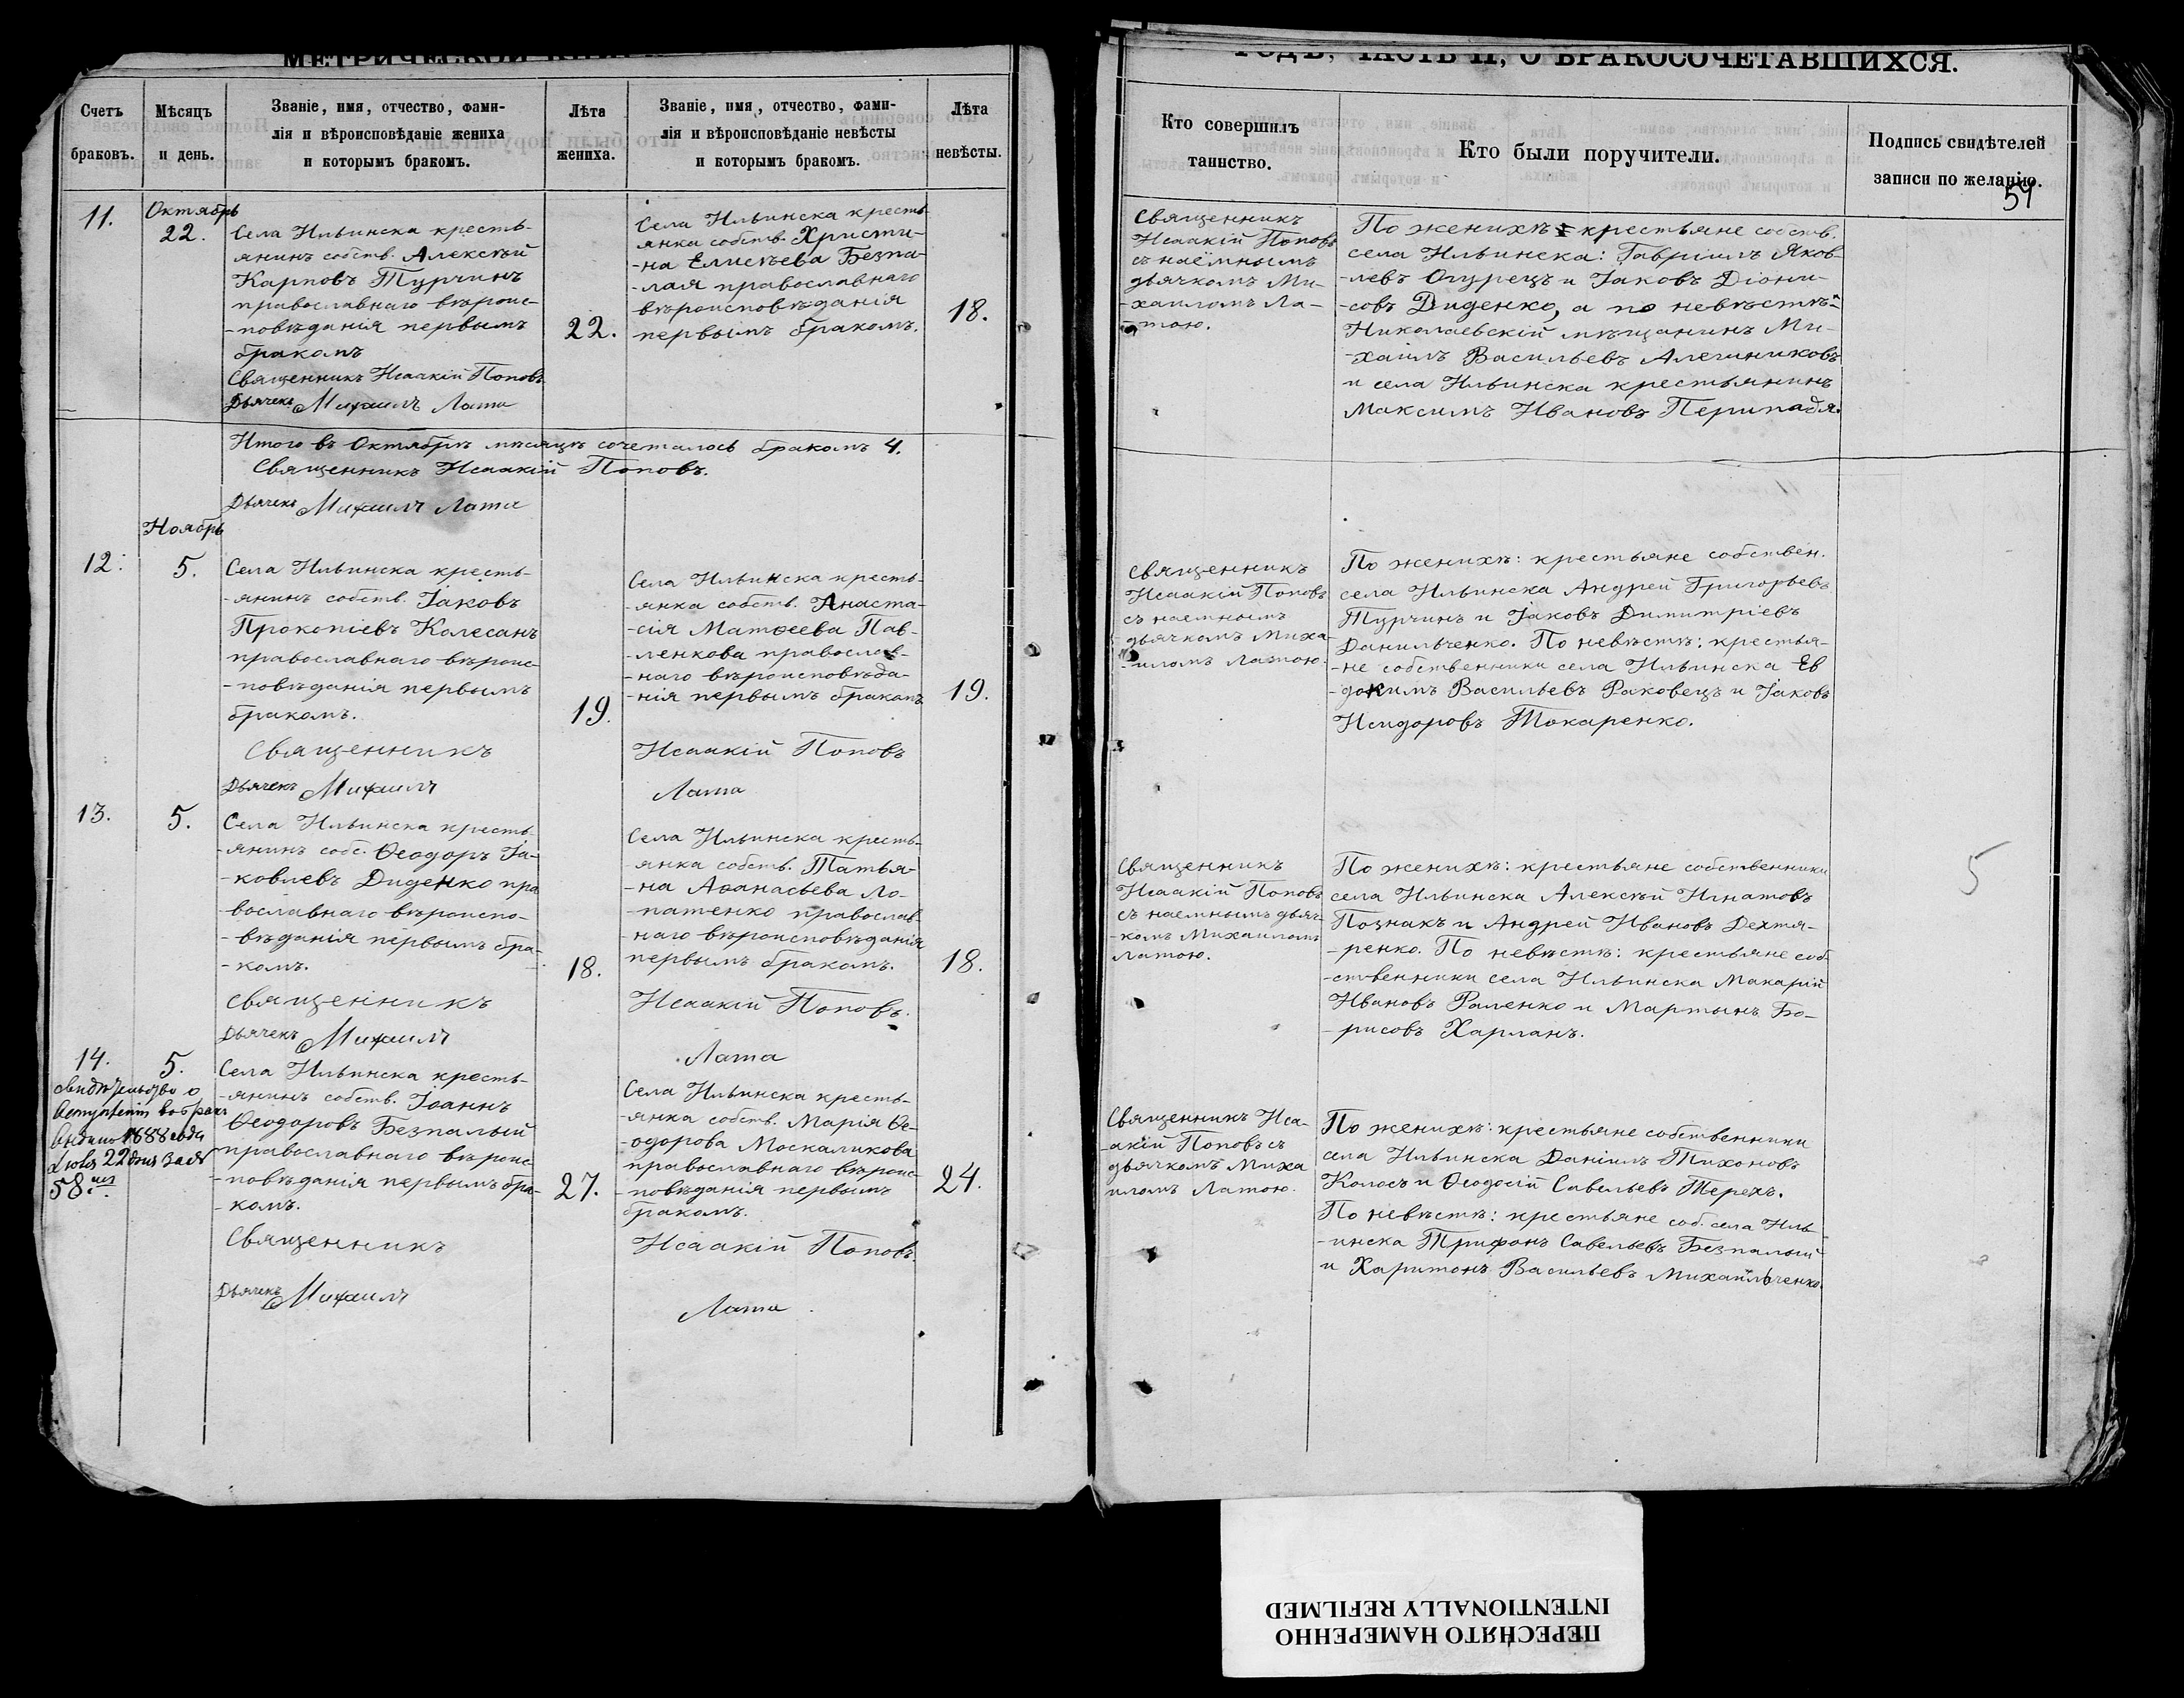 Счетъ
браковъ.
Мѣсяцъ
и день.
Званіе, имя, отчество, фами-
лія и вѣроисповѣданіе жениха
и которымъ бракомъ.
Лѣта
жениха.
Званіе, имя, отчество, фами-
лія и вѣроисповѣданіе невѣсты
и которымъ бракомъ.
Лѣта
невѣсты.
11.
Октябрь
22.
Села Ильинска кресть-
янинъ собств. Алексѣй
Карповъ Турчинъ
православнаго вѣроис-
-повѣданія первымъ
бракомъ
22.
Села Ильинска кресть-
янка собств. Христи-
-на Елисѣева Безпа-
-лая православнаго
вѣроисповѣданія
первымъ бракомъ.
18.
Священникъ Исаакій Поповъ
Дьячекъ Михаилъ Лата
Итого въ Октябрѣ мѣсяцѣ сочеталось бракомъ 4.
Священникъ Исаакій Поповъ.
Дьячекъ Михаилъ Лата
Ноябрь
12.
5.
Села Ильинска кресть-
-янинъ собств. Іаковъ
Прокопіевъ Колесанъ
православнаго вѣроис-
-повѣданія первымъ
бракомъ.
19.
Села Ильинска кресть-
-янка собств. Анаста-
-сія Матѳеева Пав-
-ленкова православ-
-наго вѣроисповѣда-
-нія первымъ бракомъ
19.
Священникъ Исаакій Поповъ
Дьячекъ Михаилъ Лата
13.
5.
Села Ильинска кресть-
-янинъ собс. Ѳеодоръ Іа-
-ковлевъ Диденко пра
вославнаго вѣроиспо-
-вѣданія первымъ бра-
-комъ.
18.
Села Ильинска кресть-
-янка собств. Татья-
-на Аѳанасьева Ло-
-патенко православ-
-наго вѣроисповѣданія
первымъ бракомъ.
18.
Священникъ Исаакій Поповъ.
Дьячекъ Михаилъ Лата
14.
5.
Свидѣтельство о
вступленіи въ бракъ
выдано 1888 года
22 дня за №
58.
Села Ильинска кресть-
-янинъ собств. Іоаннъ
Ѳеодоровъ Безпалый
православнаго вѣроис-
-повѣданія первымъ бра-
-комъ.
27.
Села Ильинска кресть-
-янка собств. Марія Ѳе-
-одорова Москаликова
православнаго вѣроис-
-повѣданія первымъ
бракомъ.
24.
Священникъ Исаакій Поповъ.
Дьячекъ Михаилъ Лата
ЧАСТЬ II, О БРАКОСОЧЕТАВШИХСЯ.
Кто совершилъ
таинство.
Кто были поручители.
Подпись свидѣтелей
записи по желанію.
Священникъ
Исаакій Поповъ
съ наёмнымъ
дьячкомъ Ми-
-хаиломъ Ла-
-тою.
По женихѣ крестьяне собств.
села Ильинска: Гавріилъ Яков-
-левъ Огурецъ и Іаковъ Діони-
-совъ Диденко, а по невѣстѣ:
Николаевскій мѣщанинъ Ми-
-хаилъ Васильевъ
и села Ильинска крестьянинъ
Максимъ Ивановъ
Священникъ
Исаакій Поповъ
съ наемнымъ
дьячкомъ Миха
-иломъ Латою.
По женихѣ: крестьяне собствен.
села Ильинска Андрей Григорьевъ
Турчинъ и Іаковъ Димитріевъ
Данильченко. По невѣстѣ: крестья-
-не собственники села Ильинска Ев
-докимъ Васильевъ Раковецъ и Іаковъ
Исидоровъ Токаренко.
Священникъ
Исаакій Поповъ
съ наемнымъ дьяч-
-комъ Михаиломъ
Латою.
По женихѣ: крестьяне собственники
села Ильинска Алексѣй Игнатовъ
Познакъ и Андрей Ивановъ Дехтя-
-ренко. По невѣстѣ: крестьяне соб-
-ственники села Ильинска Макарій
Ивановъ Раленко и Мартынъ Бо-
-рисовъ Харланъ.
5
Священникъ Иса-
-акій Поповъ съ
дьячкомъ Миха
иломъ Латою.
По женихѣ: крестьяне собственники
села Ильинска Даніилъ Тихоновъ
Колосъ и Ѳеодосій Савельевъ Терехъ.
По невѣстѣ: крестьяне соб. села Иль-
-инска Трифонъ Савельевъ Безпалый
и Харитонъ Васильевъ Михаильченко.
ПЕРЕСНЯТО НАМЕРЕННО
INTENTIONALLY REFILMED